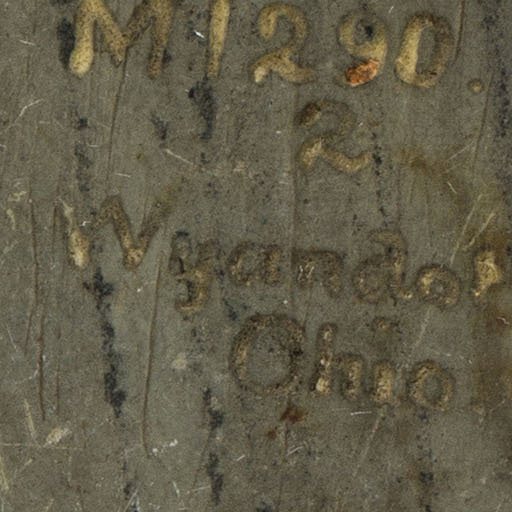 M1290.
2
Wyandot
Ohio